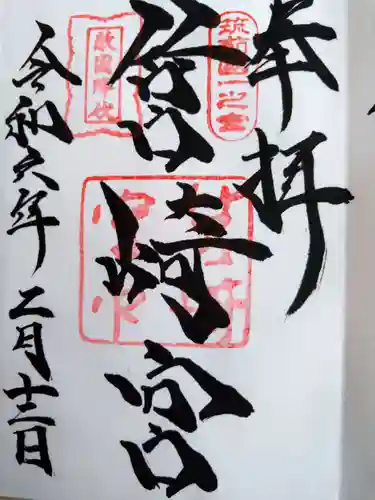 奉拝
筑前國一之宮
筥崎宮
敵國降伏
令和六年二月十三日